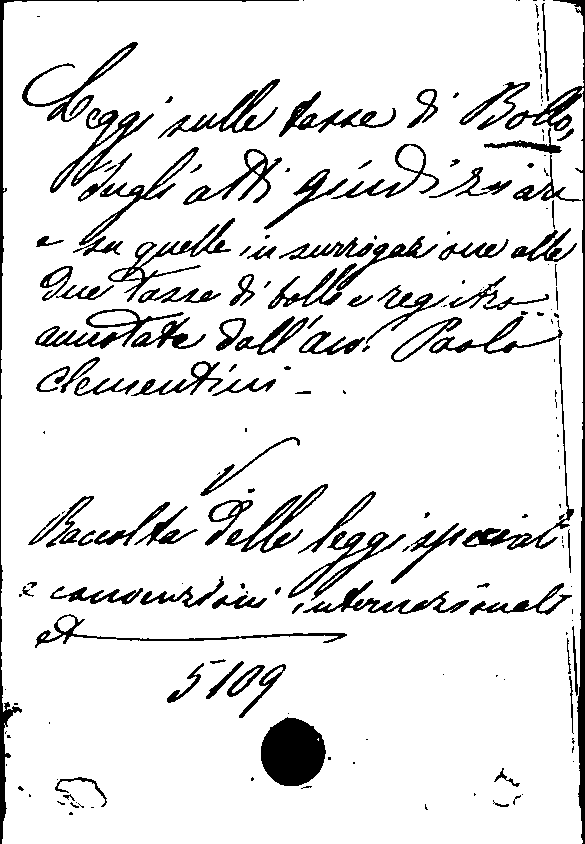 Leggi sulle tasse di Bollo,
sugli atti giudiziari
e su quelle in surrogazione alle
due tasse di bollo e registro
annotate dall'avv. Paolo
Clementini -
V
Raccolta delle leggi speciali
e convenzioni internazionali
et
5109